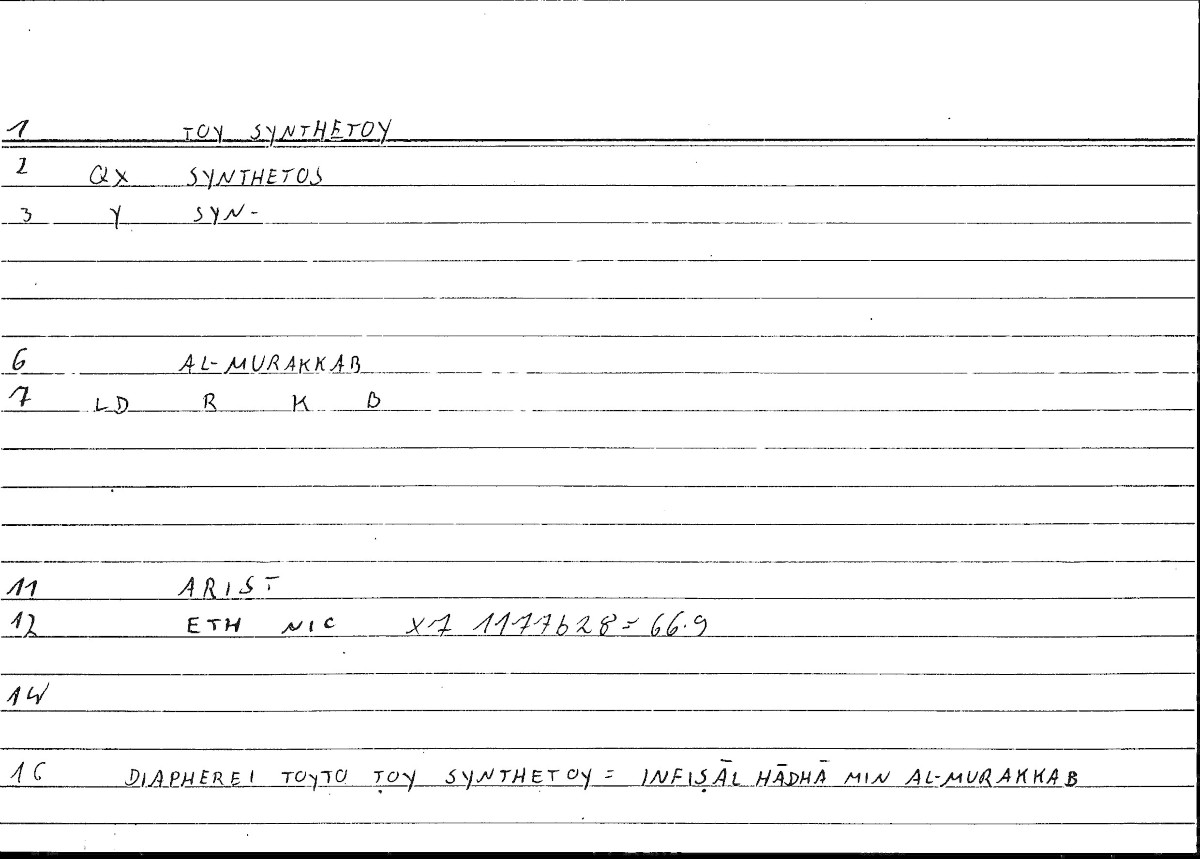 1 TOY SYNTHETOY
2 QX SYNTHETOS
3 Y SYN-
6 AL-MURAKKAB
7 LD R K B
11 ARIST
12 ETH NIC X7 1177b28 = 66.9
14
16 DIAPHEREI TOYTO TOY SYNTHETOY = INFIṢĀL HĀDHĀ MIN AL-MURAKKAB